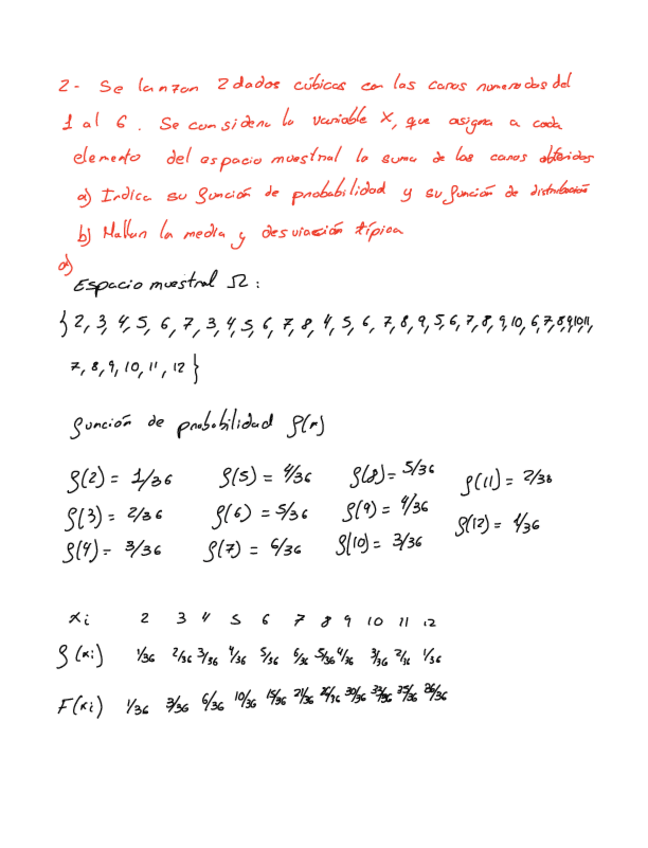 2- Se lanzan 2 dados cúbicos con las caras numeradas del
1 al 6. Se considera la variable X, que asigna a cada
elemento del espacio muestral la suma de las caras obtenidas
a) Indica su función de probabilidad y su función de distribución
b) Hallan la media y desviación típica
a)
Espacio muestral Ω:
{2, 3, 4, 5, 6, 7, 3, 4, 5, 6, 7, 8, 4, 5, 6, 7, 8, 9, 5, 6, 7, 8, 9, 10, 6, 7, 8, 9, 10, 11,
7, 8, 9, 10, 11, 12}
función de probabilidad f(x)
f(2) = 1/36 f(5) = 4/36 f(8) = 5/36 f(11) = 2/36
f(3) = 2/36 f(6) = 5/36 f(9) = 4/36 f(12) = 1/36
f(4) = 3/36 f(7) = 6/36 f(10) = 3/36
xi 2 3 4 5 6 7 8 9 10 11 12
f(xi) 1/36 2/36 3/36 4/36 5/36 6/36 5/36 4/36 3/36 2/36 1/36
F(xi) 1/36 3/36 6/36 10/36 15/36 21/36 26/36 30/36 33/36 35/36 36/36